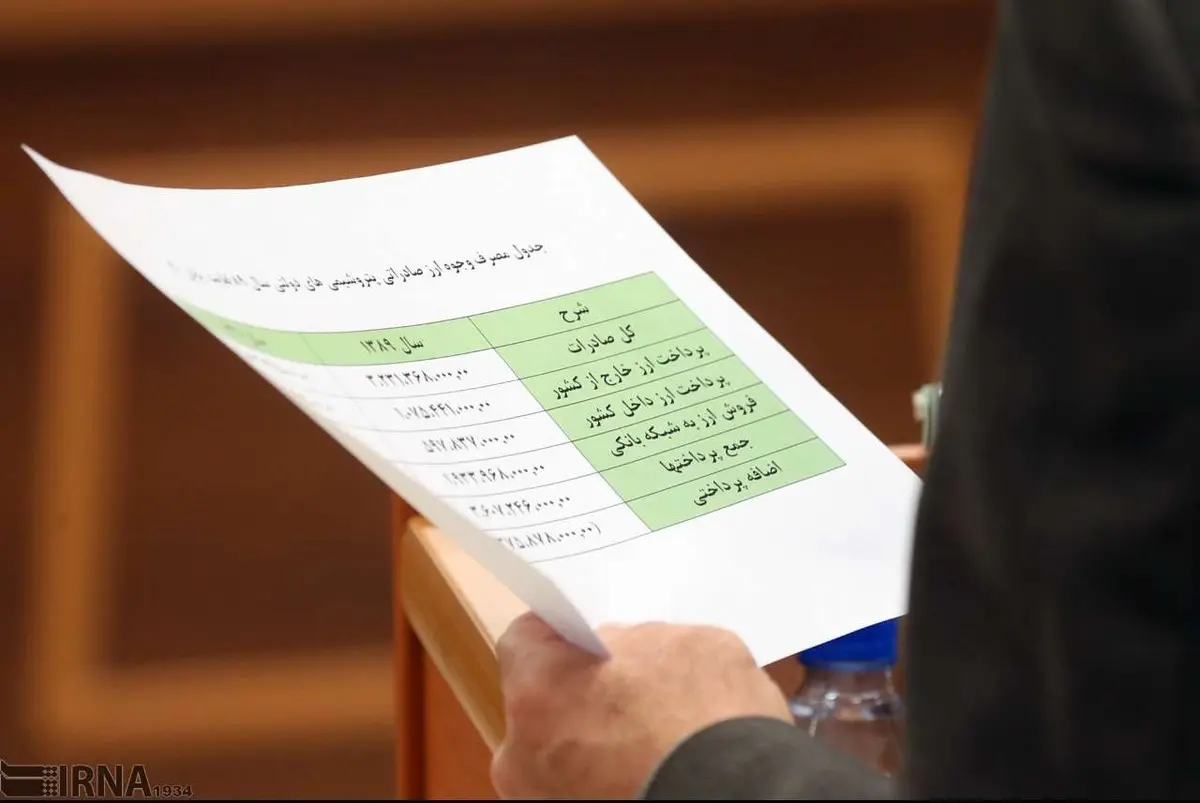 جدول مصرف وجوه ارز صادراتی پتروشیمی های دولتی سال ۸۹ لغایت
شرح سال ۱۳۸۹
کل صادرات ۳.۲۳۱.۳۶۸.۰۰۰,۰۰
پرداخت ارز خارج از کشور ۱.۰۷۵.۴۴۱.۰۰۰,۰۰
پرداخت ارز داخل کشور ۵۹۷.۸۳۷.۰۰۰,۰۰
فروش ارز به شبکه بانکی ۱.۹۳۳.۹۶۸.۰۰۰,۰۰
جمع پرداختها ۳.۶۰۷.۲۴۶.۰۰۰,۰۰
اضافه پرداختی (۳۷۵.۸۷۸.۰۰۰,۰۰
IRNA 1934